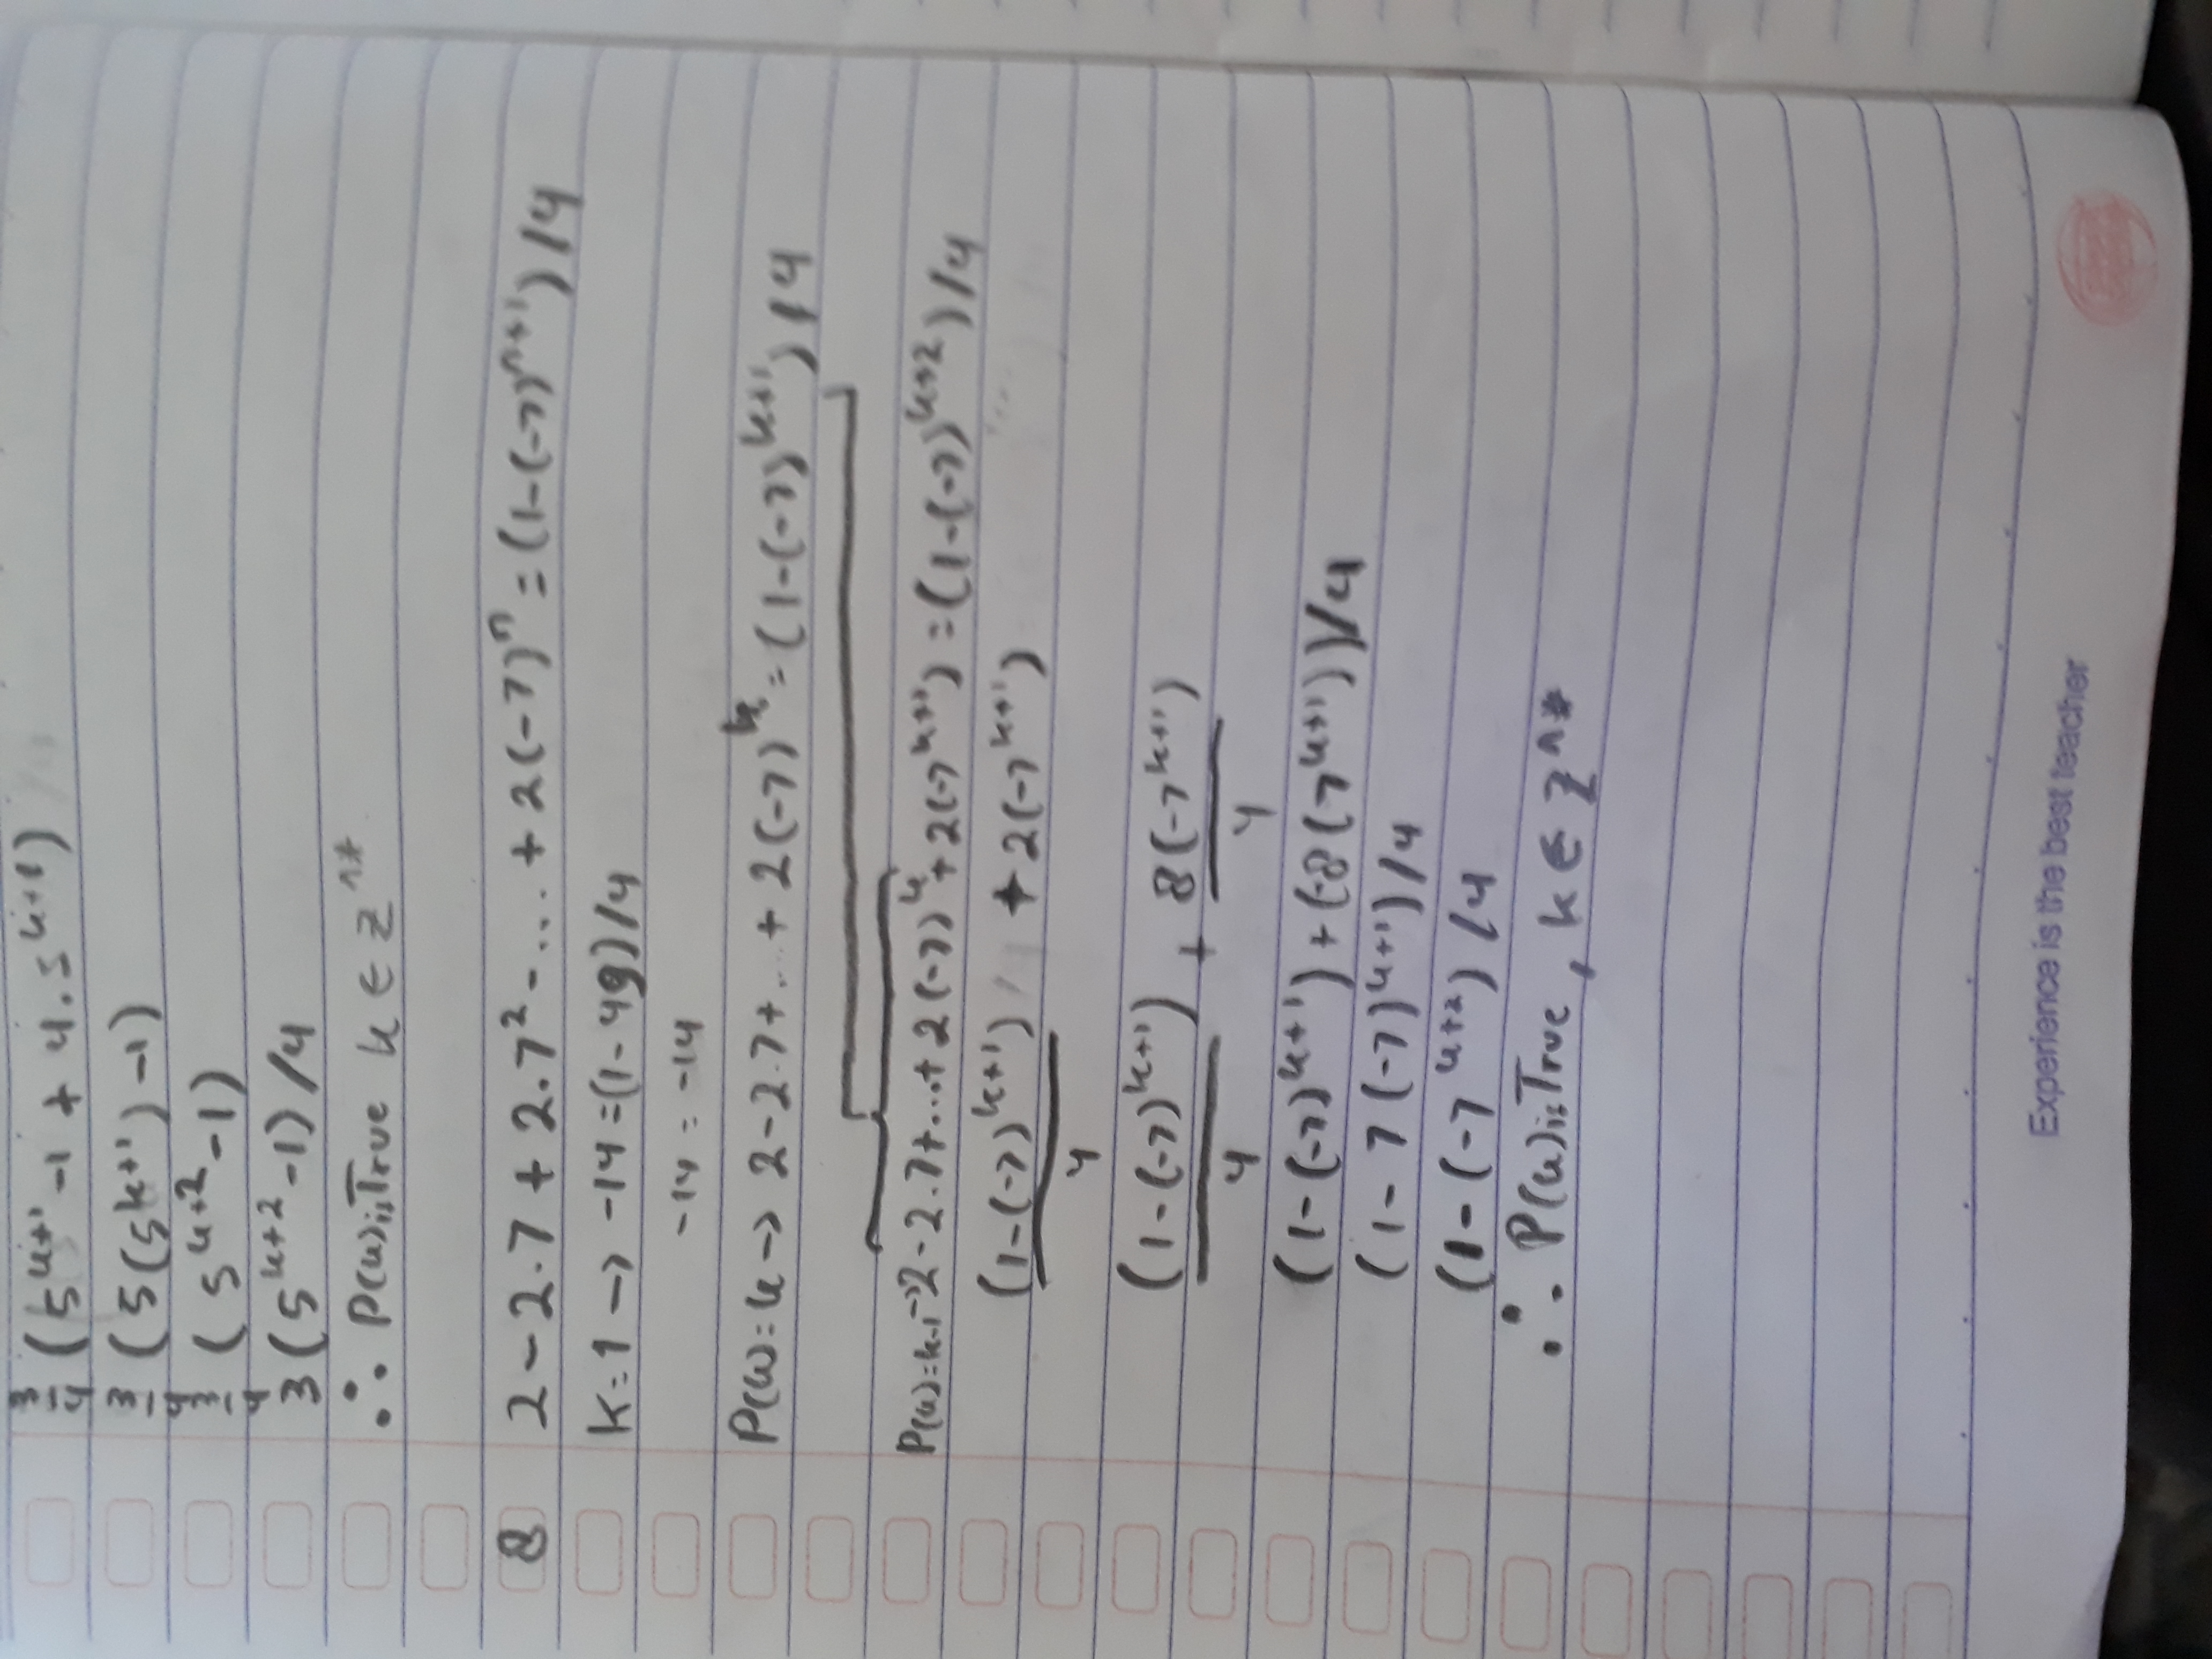 3/4 (5^{k+1} -1 + 4.5^{k+1})
3/4 (5(5^{k+1}) -1)
3/4 (5^{k+2} -1)
3(5^{k+2} -1)/4
∴ P(k) is True k ∈ Z^{n*}
8 2 - 2.7 + 2.7² - ... + 2(-7)^n = (1-(-7)^{n+1})/4
k=1 → -14 = (1-49)/4
-14 = -14
P(k)=k → 2-2.7+...+ 2(-7)^k = (1-(-7)^{k+1})/4
P(k)=k+1 → 2-2.7+...+2(-7)^k + 2(-7^{k+1}) = (1-(-7)^{k+2})/4
(1-(-7)^{k+1})/4 + 2(-7^{k+1})
(1-(-7)^{k+1})/4 + 8(-7^{k+1})/4
(1-(-7)^{k+1}) + (-8(7^{k+1}))/4
(1-7(-7)^{k+1})/4
(1-(-7^{k+2})/4
∴ P(k) is True, k ∈ Z^{n*}
Experience is the best teacher